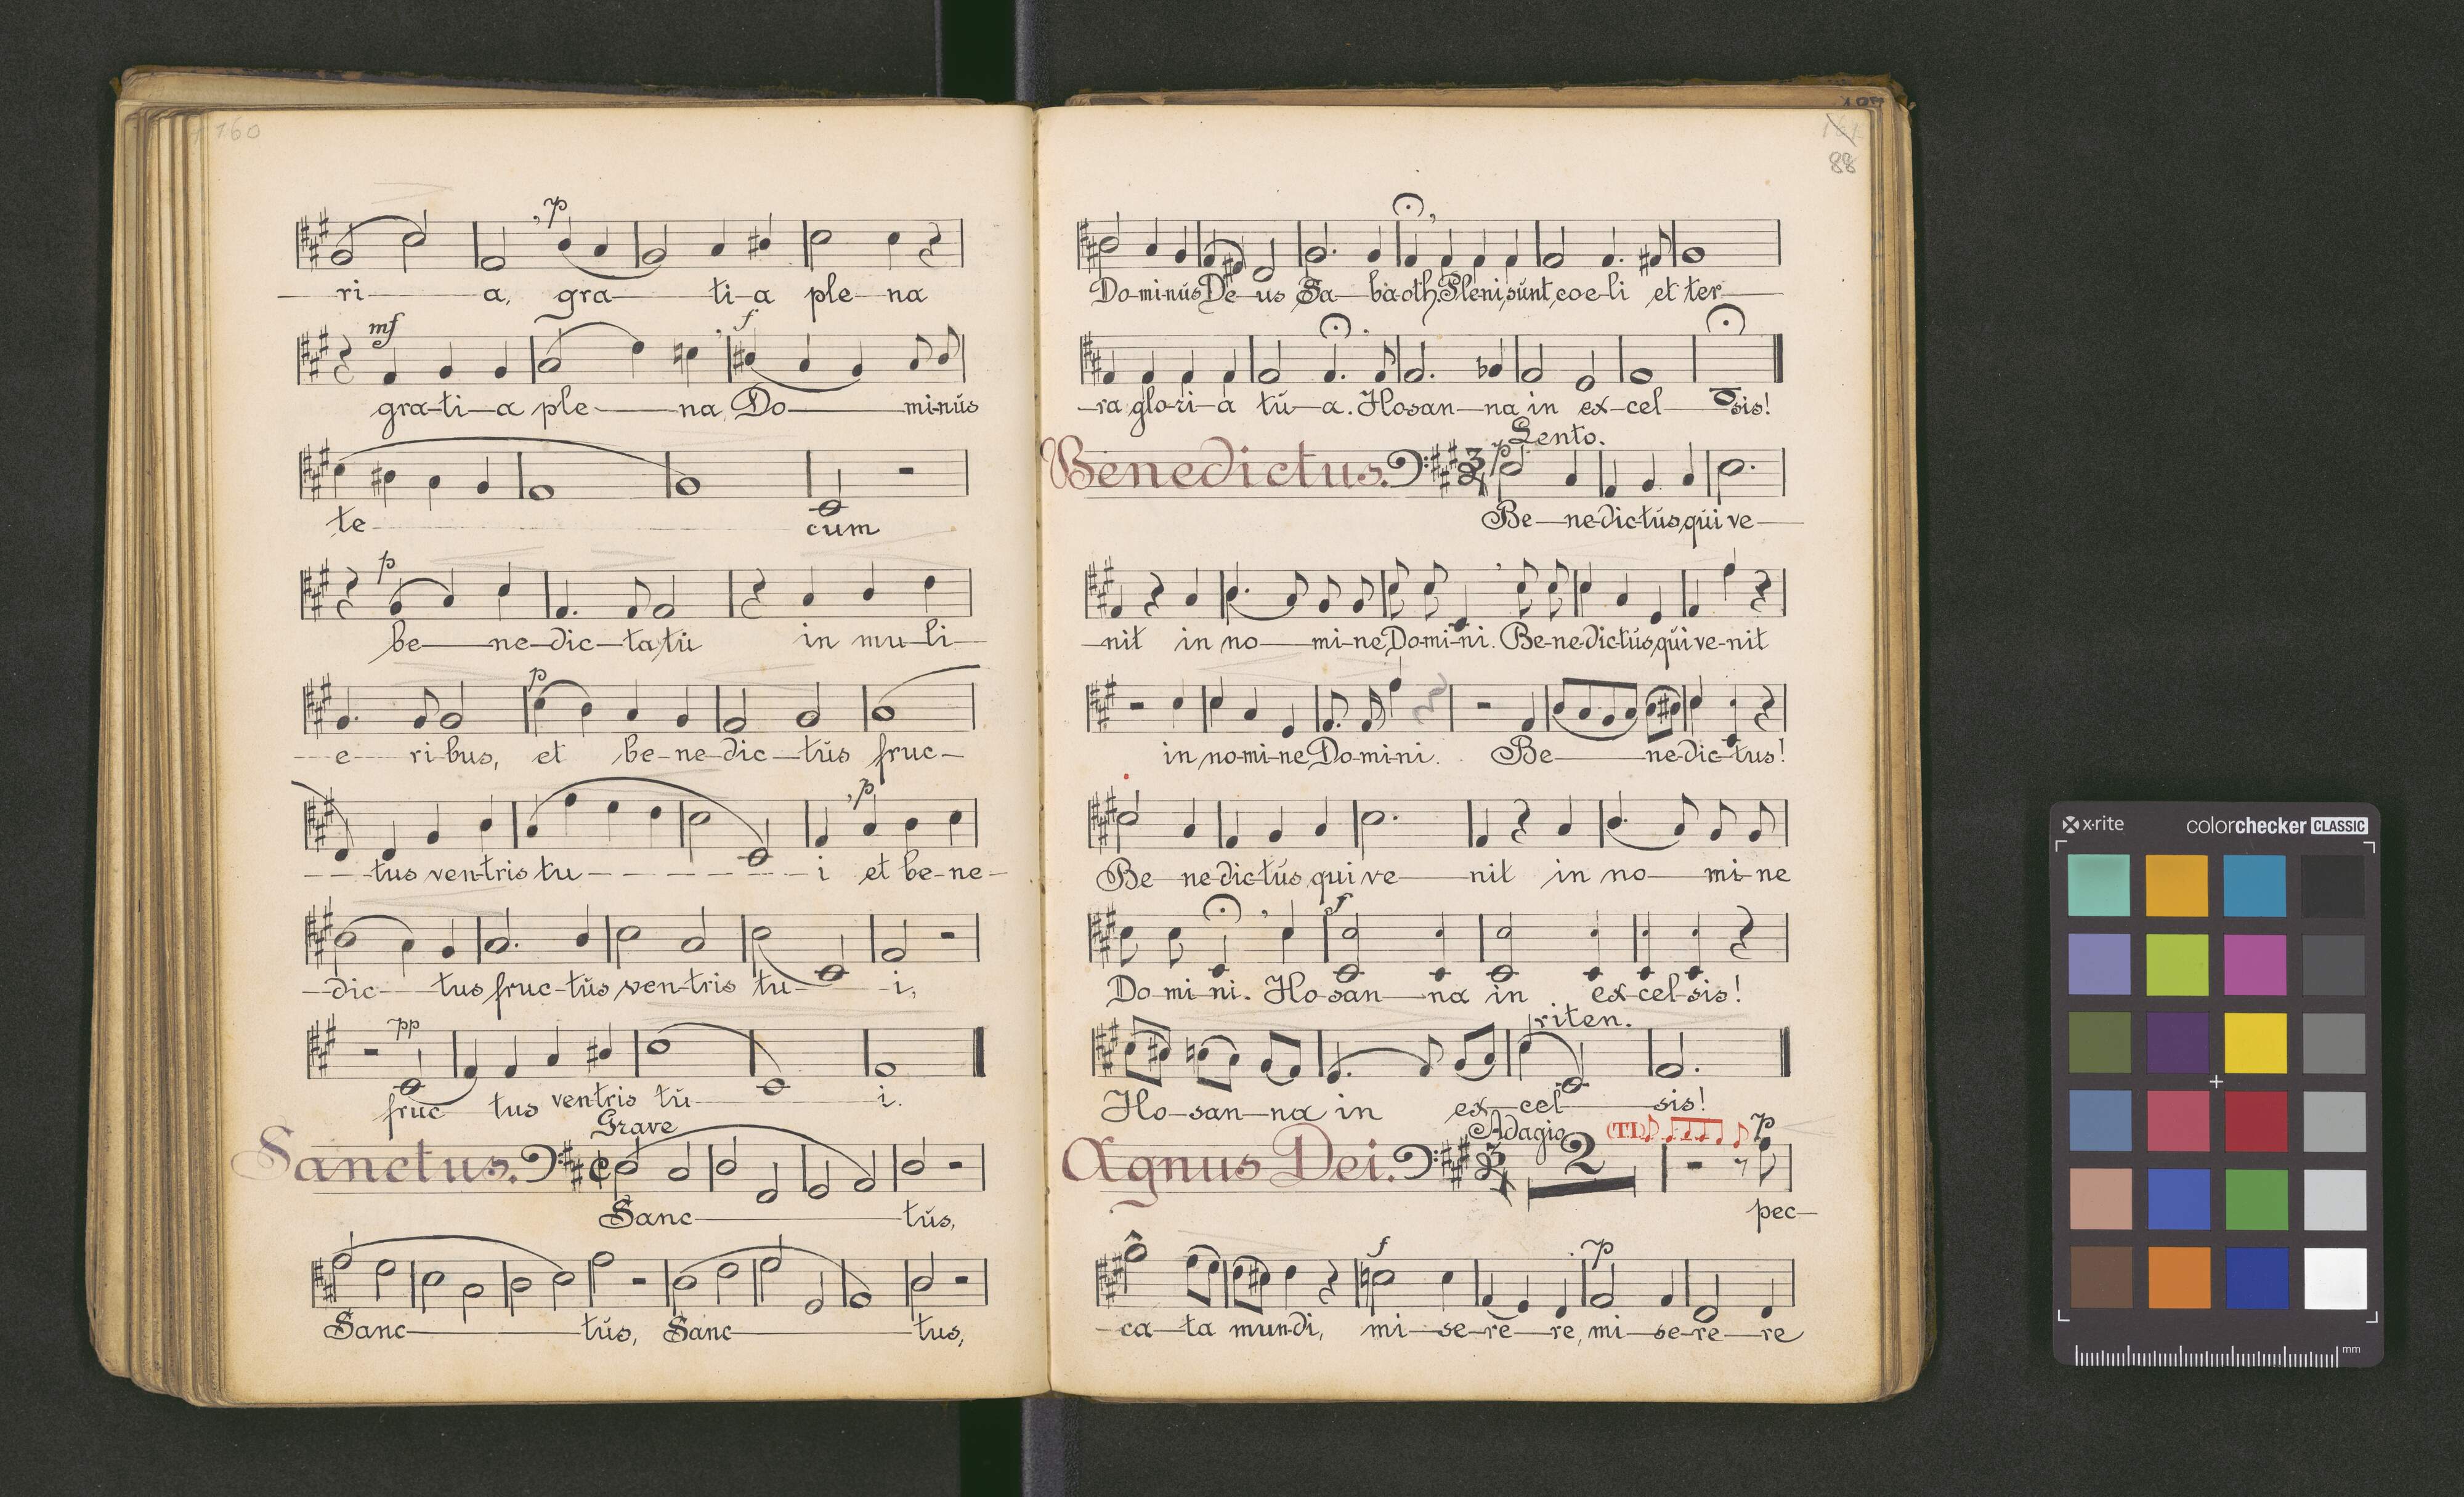 160
p
ri a, gra ti-a ple-na
mf f
gra-ti-a ple-na, Do-minŭs
te cum
p
be-ne-dic-ta tŭ in mu-li-
p
-e-ri-bus, et be-ne-dic-tŭs fruc-
, p
-tus ven-tris tu-i et be-ne-
-dic-tus fruc-tŭs ven-tris tu-i,
pp
fruc-tus ventris tŭ-i.
Grave
Sanctus.
Sanc-tŭs,
Sanc-tŭs, Sanc-tus,
161
88
Do-mi-nŭs De-us Sa-ba-oth. Pleni sŭnt coe-li et ter-
-ra glo-ri-a tŭ-a. Hosan-na in ex-cel-sis!
Lento.
Benedictus. 3/4 p
Be-ne-dic-tŭs qŭi ve-
-nit in no-mi-ne Do-mi-ni. Be-ne-dic-tŭs qŭi ve-nit
in no-mi-ne Do-mi-ni. Be-ne-dic-tus!
Be-ne-dic-tŭs qui ve-nit in no-mi-ne
f
Do-mi-ni. Ho-san-na in ex-cel-sis!
riten.
Ho-san-na in ex-cel-sis!
Adagio (T1) p
Agnus Dei. 3/4 2
pec-
f p
-ca-ta mun-di, mi-se-re-re, mi-se-re-re
x·rite colorchecker CLASSIC
mm